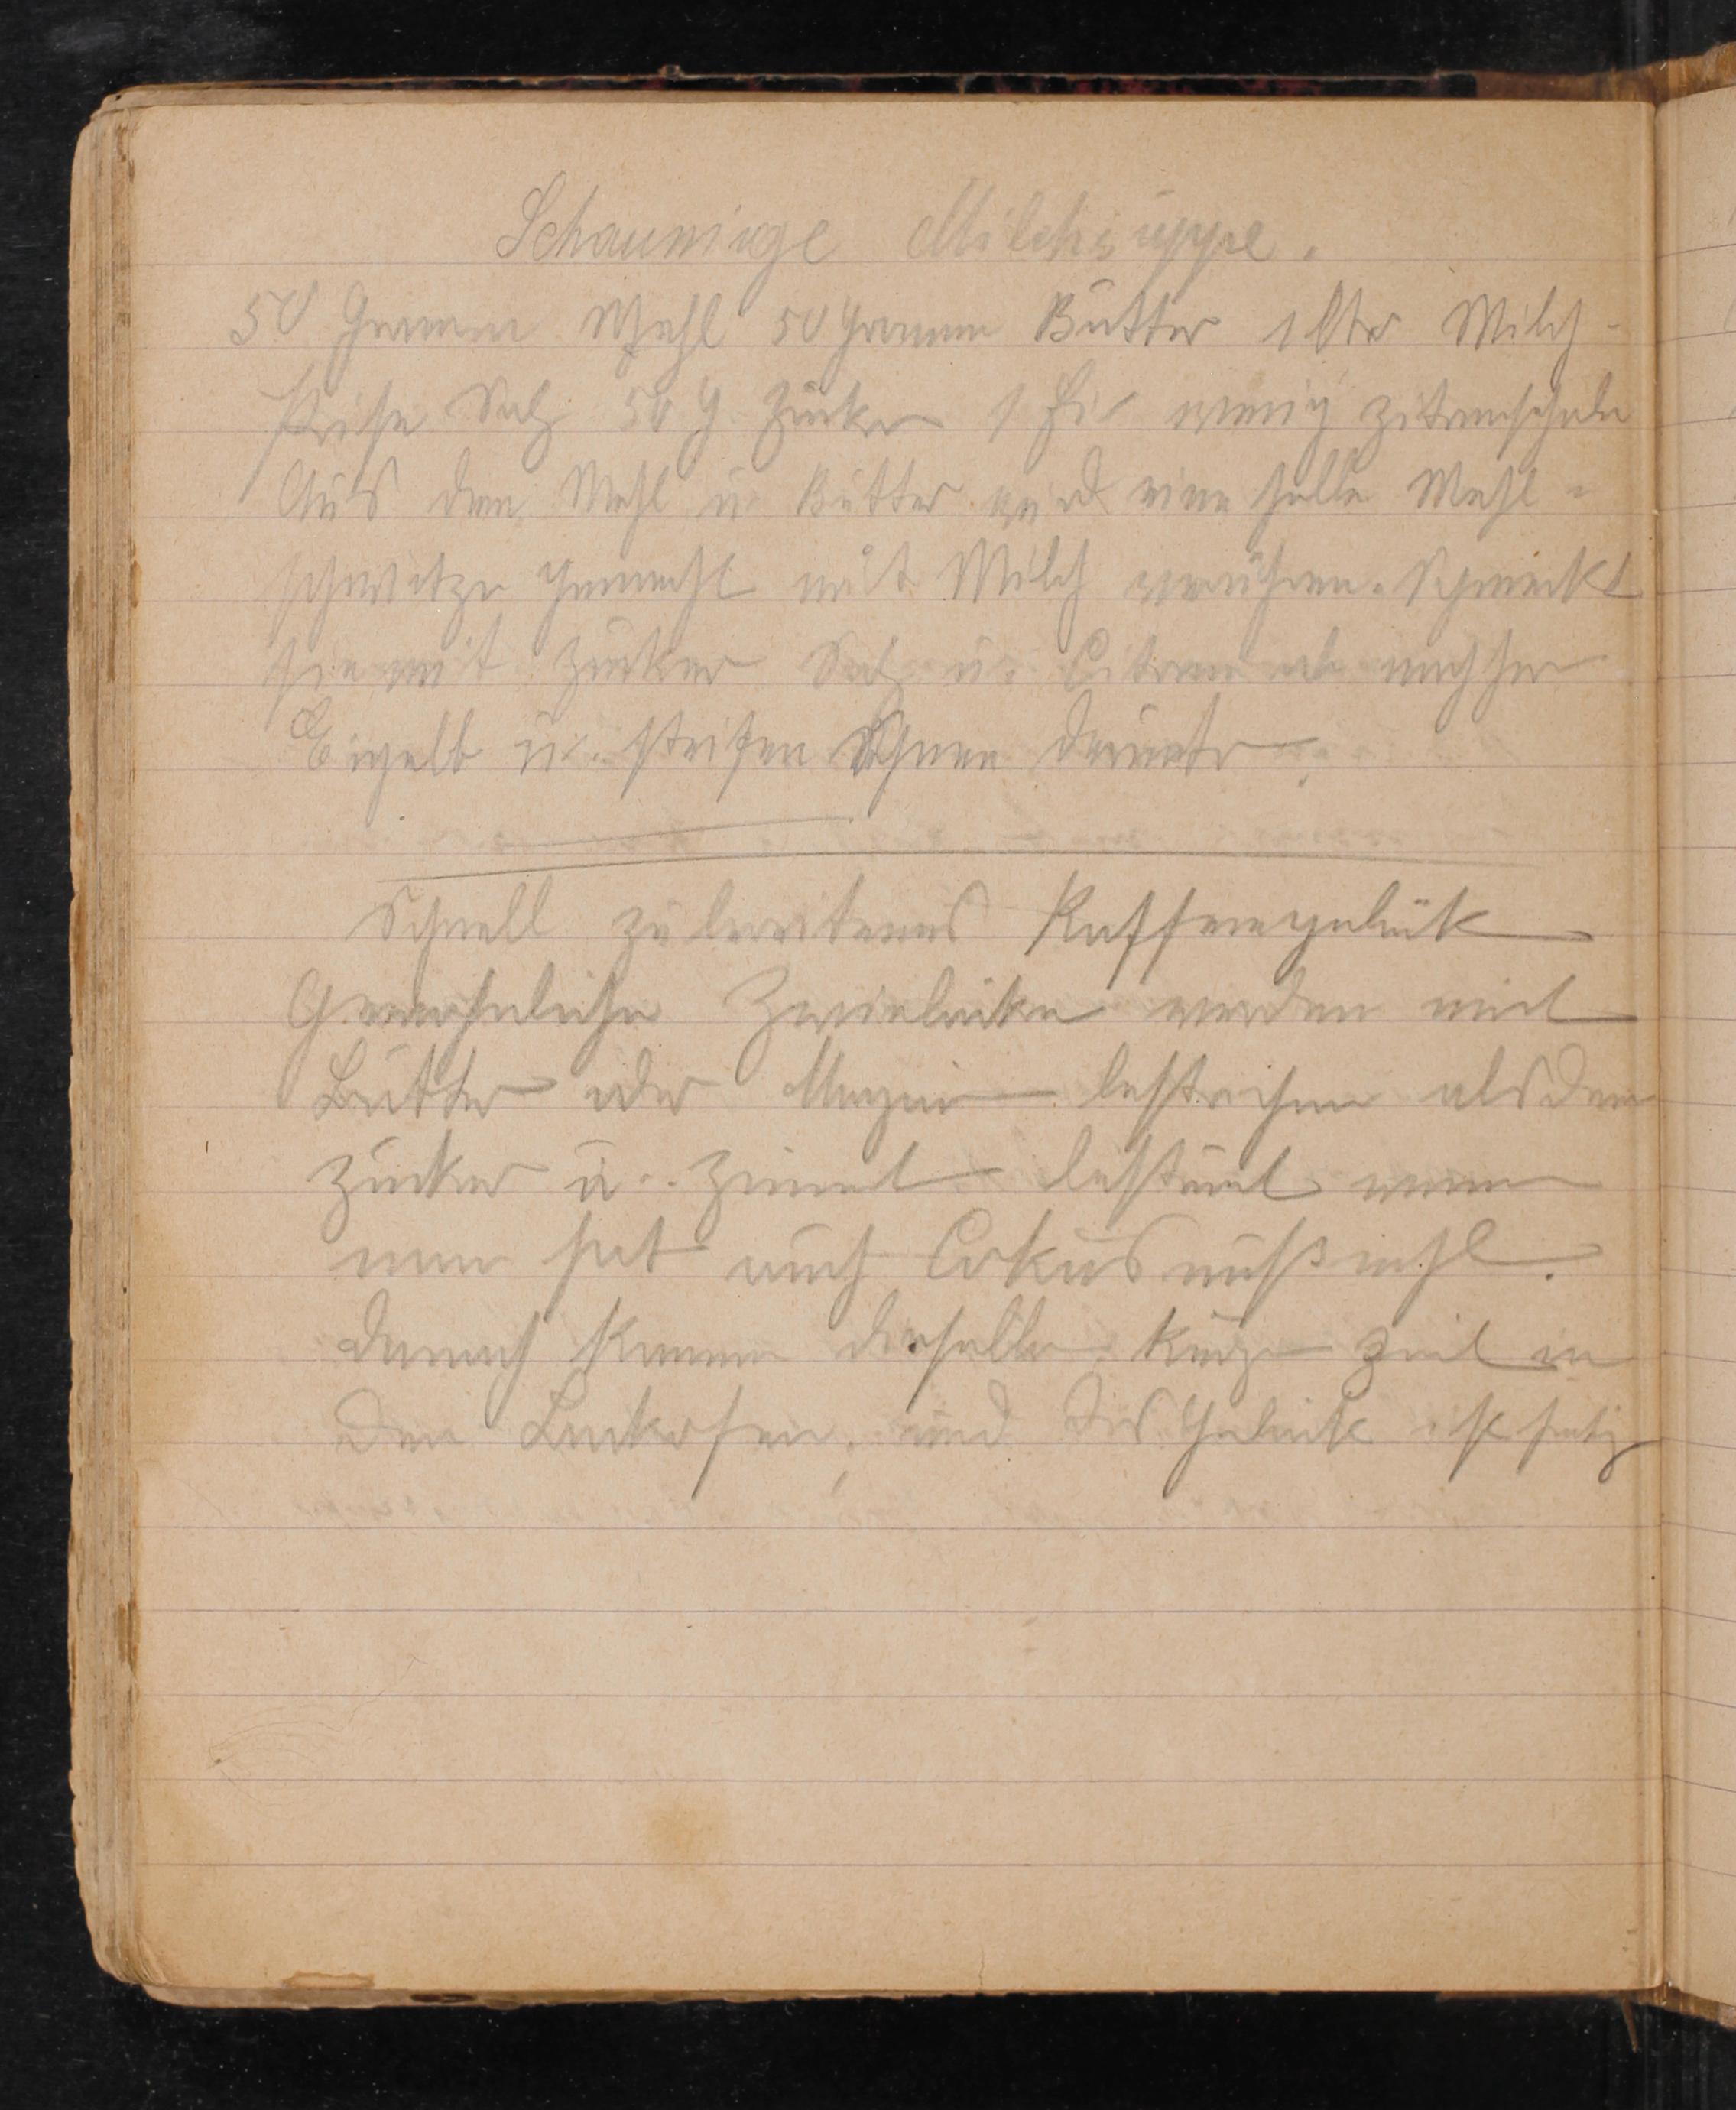 Schaumige Milchsuppe.
50 Gramm Mehl 50 Gramm Butter 1 ltr Milch-
Prise Salz 50 g Zucker 1 Ei wenig Zitronschale
Aus dem Mehl u. Butter wird eine helle Mehl-
schwitze gemacht mit Milch verrühren. Schmeckt
sie mit Zucker Salz u. Citrone ab nachher
Eigelb u. steifen Schnee darunter.
Schnell zubereitenes Kaffeegebäck
Gewöhnliche Zwiebäcke werden mit
Butter oder bestrichen alsdann
Zucker u. Zimmet bestreut wenn
man hat auch Cokusnußmehl.
Danach kommen dieselben kurze Zeit in
den Backofen, und das Gebäck ist fertig